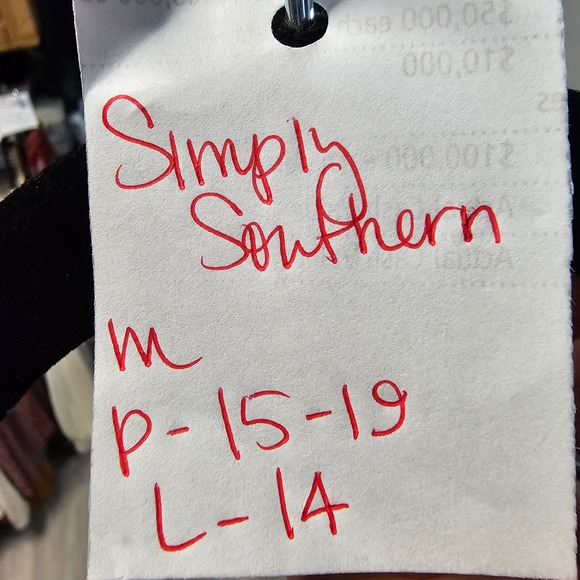 Simply
Southern
m
p-15-19
L-14